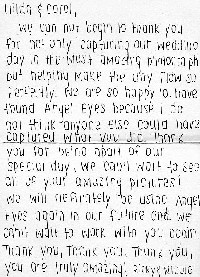 Linda & Carol,
We can not begin to thank you
for not only capturing our wedding
day in the most amazing photographs
but helping make the day flow so
perfectly. We are so happy to have
found Angel Eyes because I do
not think anyone else could have
captured what you did. Thank
you for being apart of our
special day, we can't wait to see
all of your amazing pictures!
We will definately be using Angel
Eyes again in our future and we
can't wait to work with you again.
Thank you, Thank you, Thank you,
you are truly amazing!